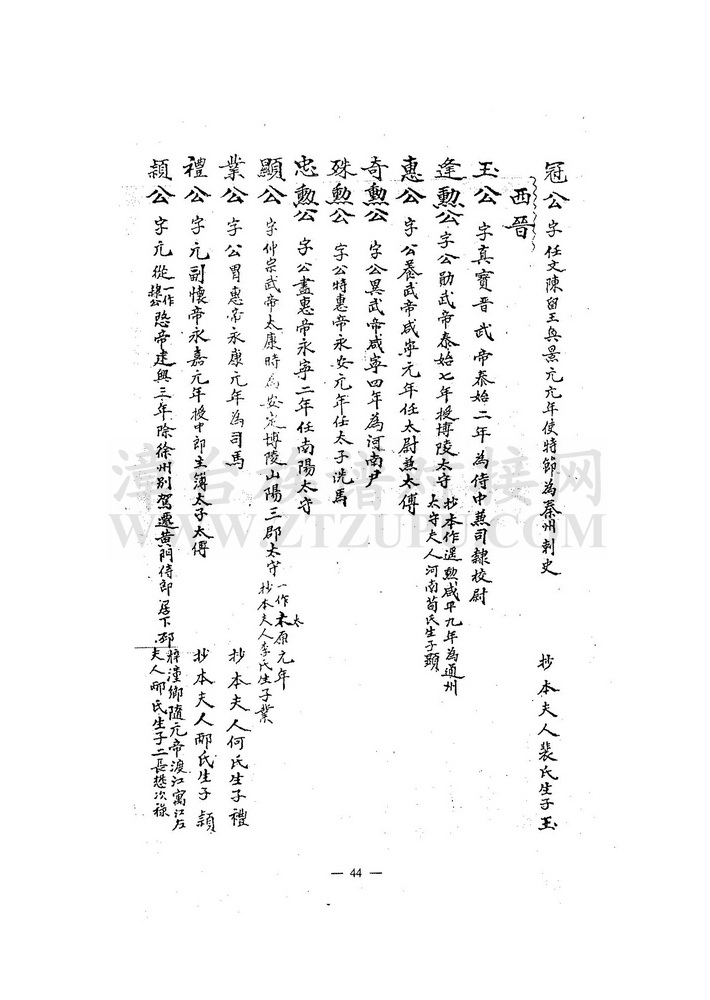 冠公 字任文陳留王奐景元元年使特節為秦州刺史 抄本夫人裴氏生子玉
西晉
玉公 字真寶晉武帝泰始二年為侍中燕司隸校尉
逢勲公 字公勛武帝泰始七年授博陵太守 抄本作選勲咸平九年為通州
太守夫人河南荀氏生子顯
惠公 字公養武帝咸寧元年任太尉燕太傅
奇勲公 字公異武帝咸寧四年為河南尹
殊勲公 字公特惠帝永安元年任太子洗馬
忠勲公 字公盡惠帝永寧二年任南陽太守
顯公 字仲宗武帝太康時為安定博陵山陽三郡太守 一作太原元年
抄本夫人李氏生子業
業公 字公胃惠帝永康元年為司馬 抄本夫人何氏生子禮
禮公 字元副懷帝永嘉元年授中郎主簿太子太傅 抄本夫人邴氏生子頴
頴公 字元從一作
公愍帝建興三年除徐州別駕遷黃門侍郎居下邳 梓潼鄉隨元帝渡江寓江左
夫人邴氏生子二長懋次祿
漳台族譜對接網
WWW.ZTZUPU.COM
— 44 —